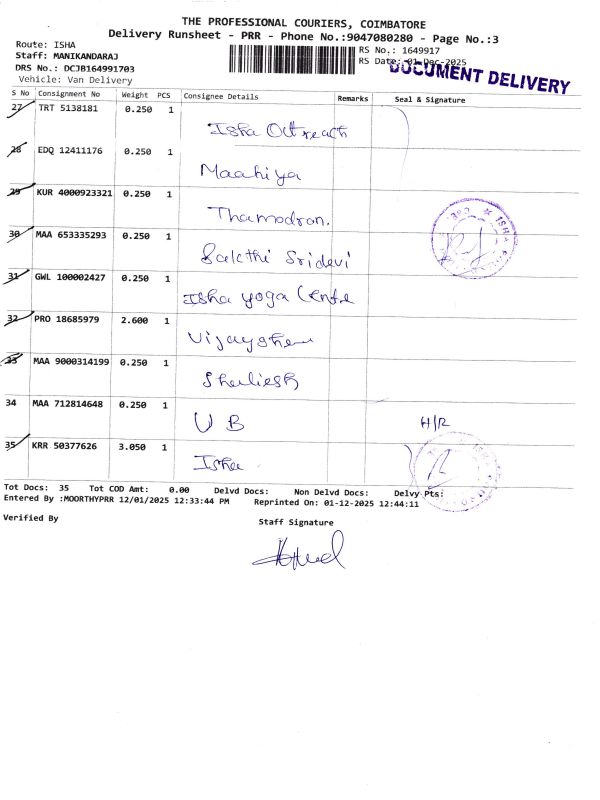 THE PROFESSIONAL COURIERS, COIMBATORE
Delivery Runsheet - PRR - Phone No.:9047080280 - Page No.:3
Route: ISHA
Staff: MANIKANDARAJ
DRS No.: DCJB164991703
Vehicle: Van Delivery
RS No.: 1649917
RS Date: 01-Dec-2025
DOCUMENT DELIVERY
S No Consignment No Weight PCS Consignee Details Remarks Seal & Signature
27 TRT 5138181 0.250 1 Isha Outreach
28 EDQ 12411176 0.250 1 Maahiya
29 KUR 4000923321 0.250 1 Thamodran.
30 MAA 653335293 0.250 1 Sakthi Sridevi
31 GWL 100002427 0.250 1 Isha yoga Centre
32 PRO 18685979 2.600 1
33 MAA 9000314199 0.250 1
34 MAA 712814648 0.250 1 U B H/R
35 KRR 50377626 3.050 1 Isha
Tot Docs: 35 Tot COD Amt: 0.00 Delvd Docs: Non Delvd Docs: Delvy Pts:
Entered By :MOORTHYPRR 12/01/2025 12:33:44 PM Reprinted On: 01-12-2025 12:44:11
Verified By
Staff Signature